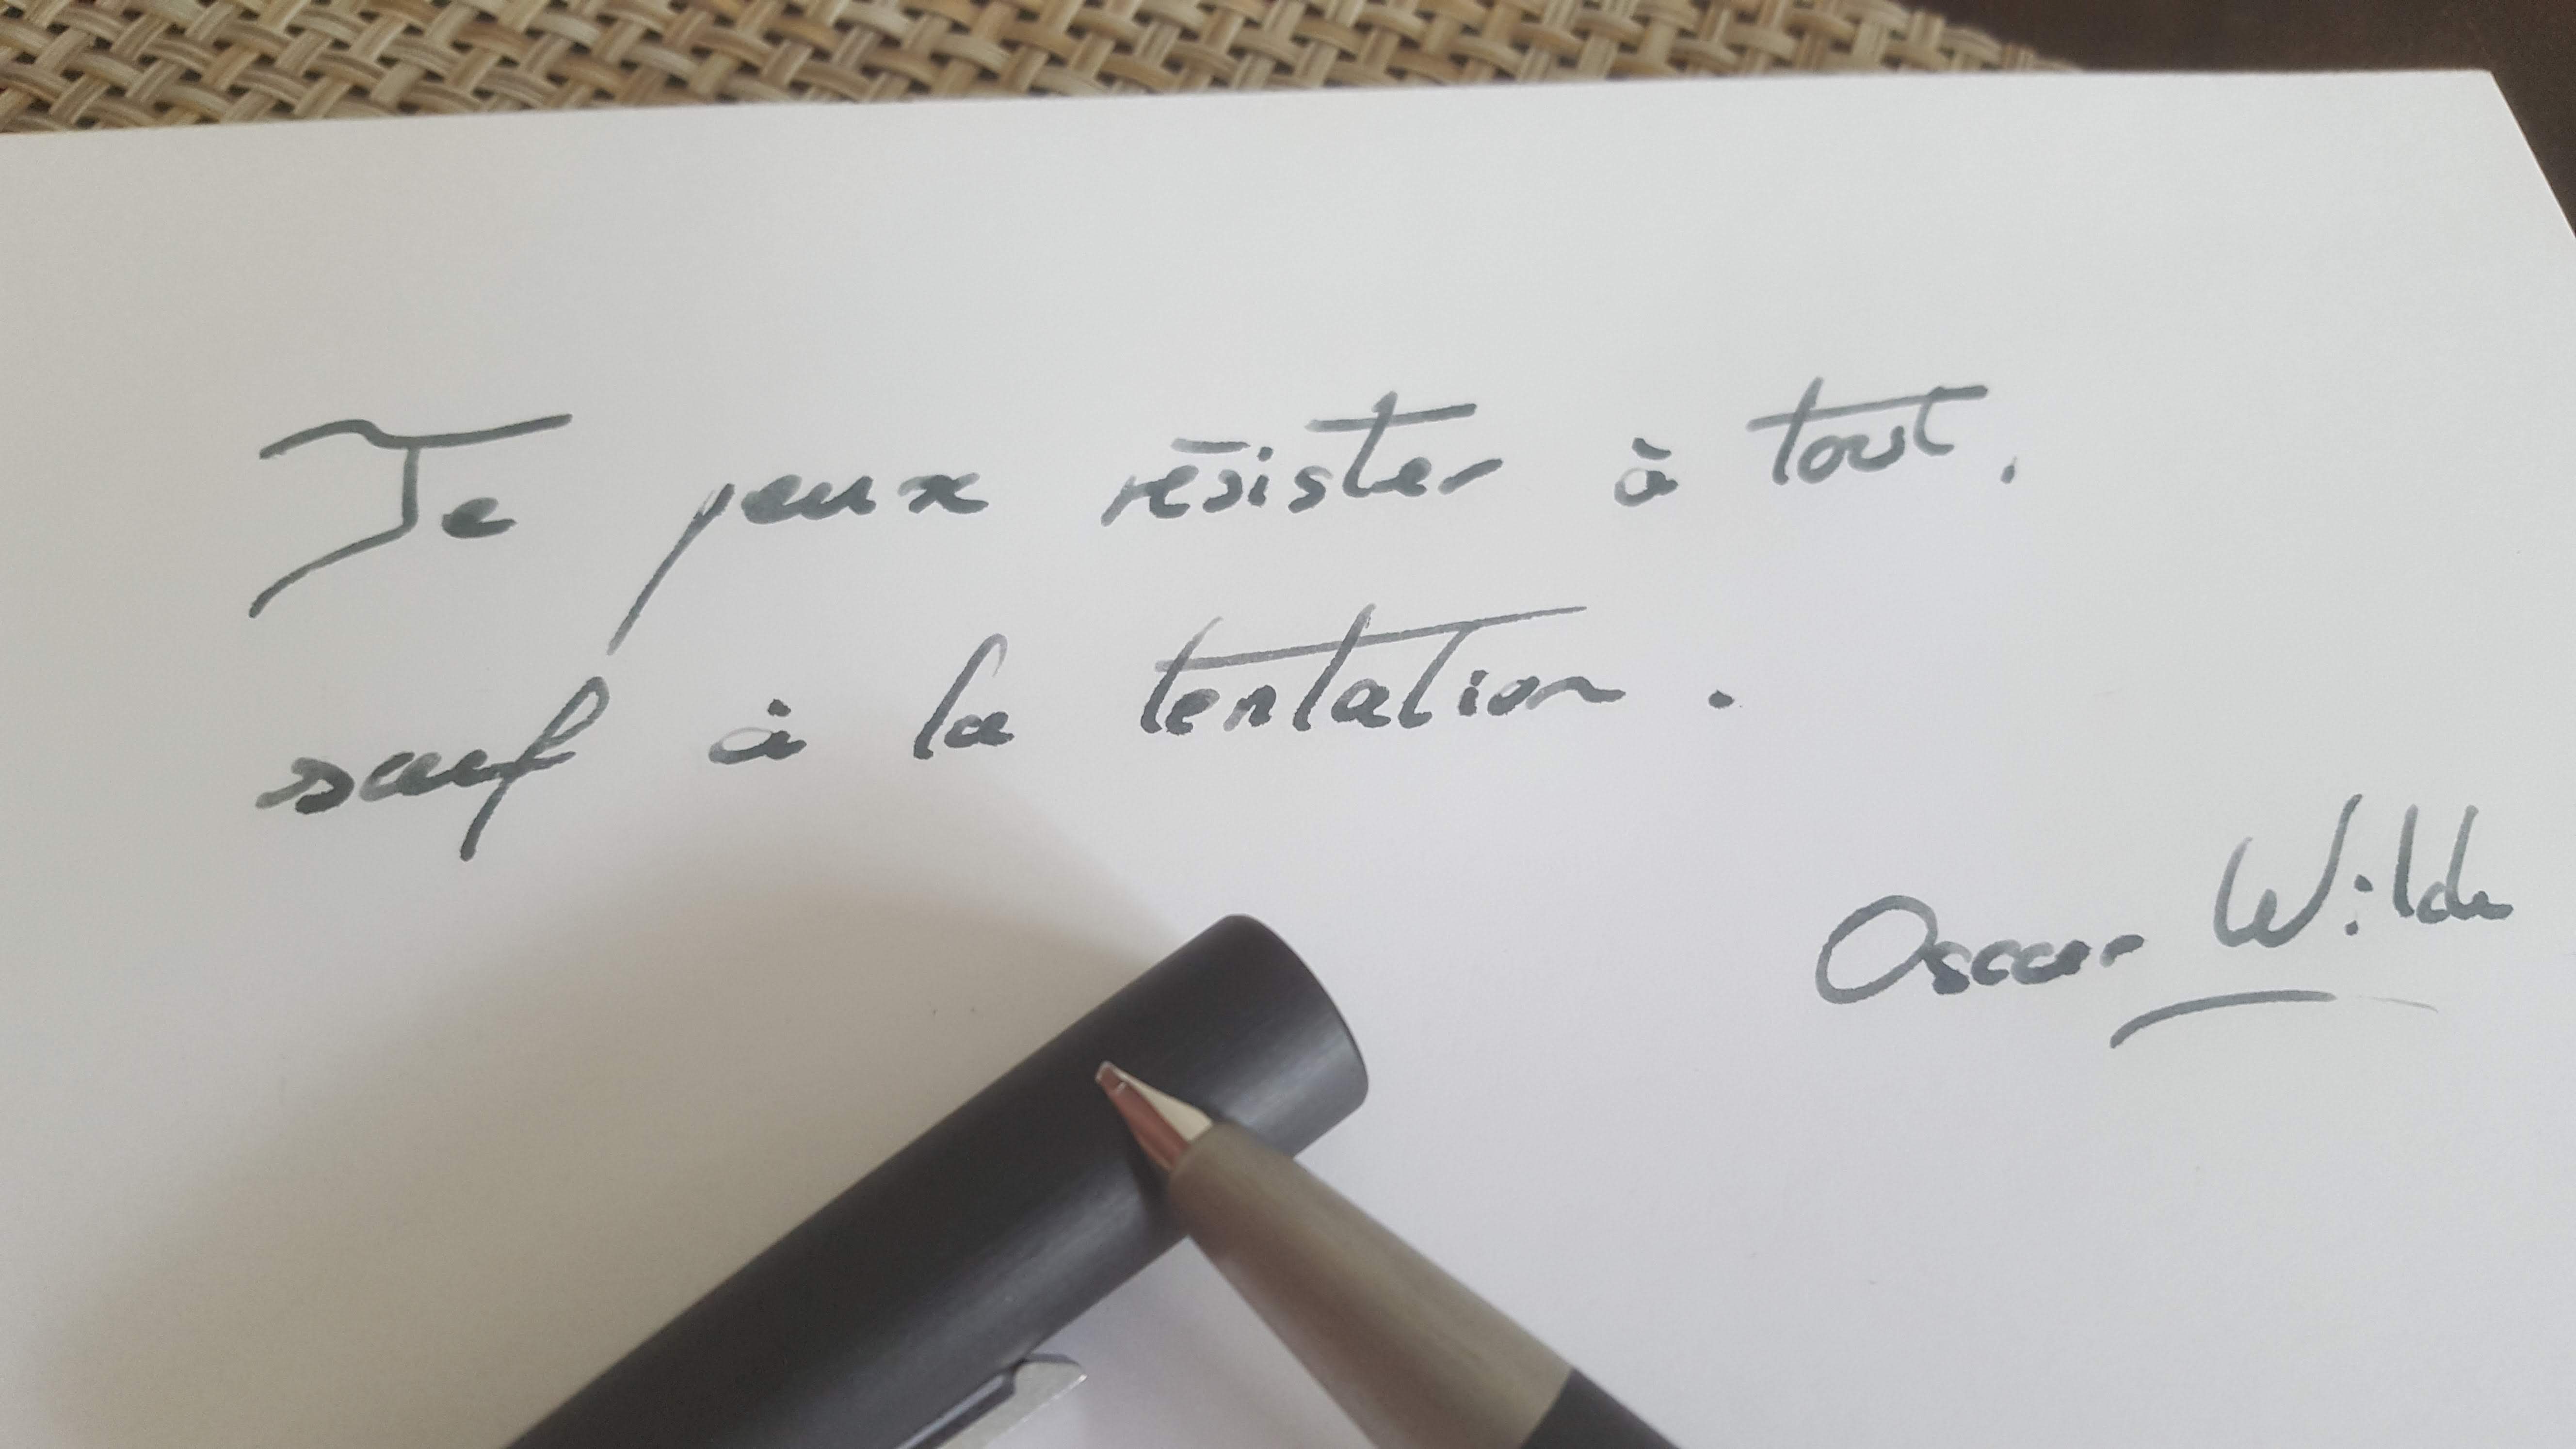 Je peux résister à tout,
sauf à la tentation.
Oscar Wilde